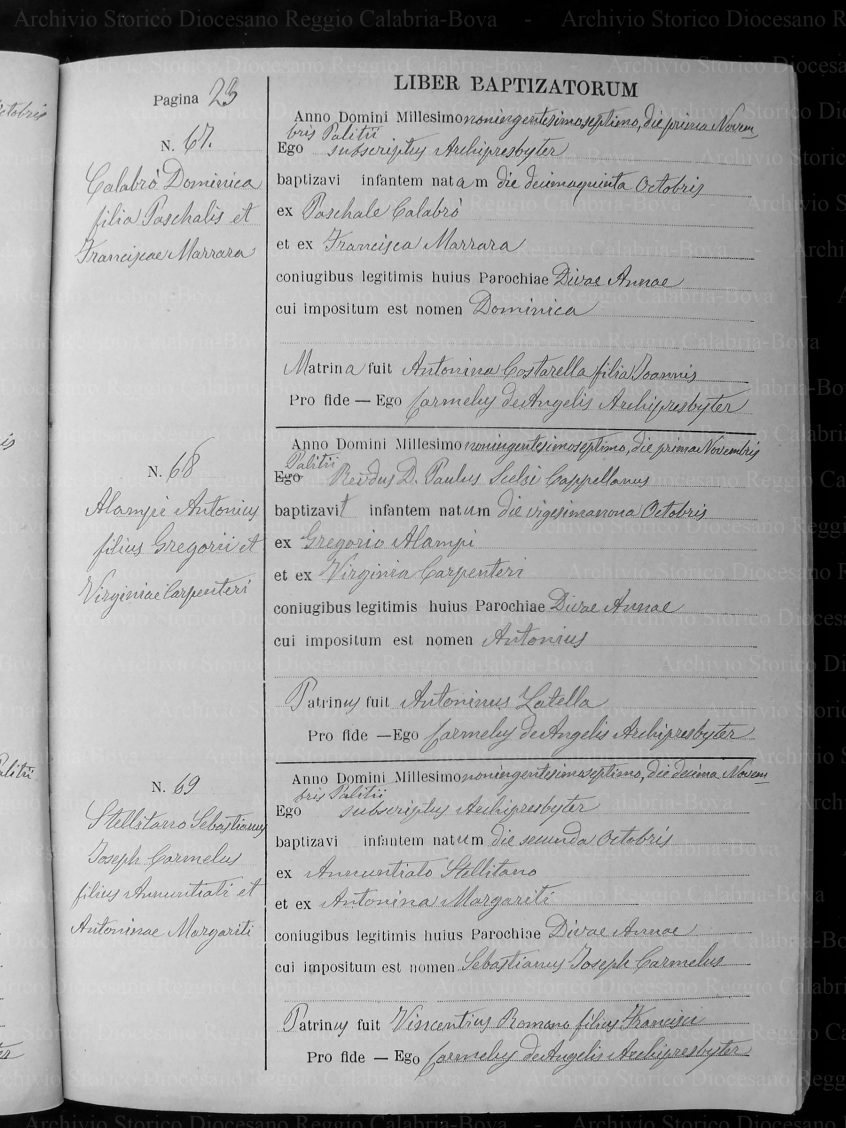 Archivio Storico Diocesano Reggio Calabria-Bova - Archivio Storico Diocesano Reggio Calabria-Bova
LIBER BAPTIZATORUM
Pagina 23
N. 67.
Calabrò Dominica
filia Paschalis et
Franciscae Marrara
Anno Domini Millesimo noningentesimoseptimo, die prima Novem
bris Palitii
Ego subscriptus Archipresbyter
baptizavi infantem natam die decimaquinta Octobris
ex Paschale Calabrò
et ex Francisca Marrara
coniugibus legitimis huius Parochiae Divae Annae
cui impositum est nomen Dominica
Matrina fuit Antonina Costarella filia Joannis
Pro fide — Ego Carmelus de Angelis Archipresbyter
N. 68
Alampi Antonius
filius Gregorii et
Virginiae Carpenteri
Anno Domini Millesimo noningentesimoseptimo, die prima Novembris
Palitii
Ego Revdus D. Paulus Cappellanus
baptizavit infantem natum die vigesimanona Octobris
ex Gregorio Alampi
et ex Virginia Carpenteri
coniugibus legitimis huius Parochiae Divae Annae
cui impositum est nomen Antonius
Patrinus fuit Antoninus Latella
Pro fide — Ego Carmelus de Angelis Archipresbyter
N. 69
Stellitano Sebastianus
Joseph Carmelus
filius Annuntiati et
Antoninae Margariti
Anno Domini Millesimo noningentesimoseptimo, die decima Novem
bris Palitii
Ego subscriptus Archipresbyter
baptizavi infantem natum die secunda Octobris
ex Annuntiato Stellitano
et ex Antonina Margariti
coniugibus legitimis huius Parochiae Divae Annae
cui impositum est nomen Sebastianus Joseph Carmelus
Patrinus fuit Vincentius Romano filius Francisci
Pro fide — Ego Carmelus de Angelis Archipresbyter